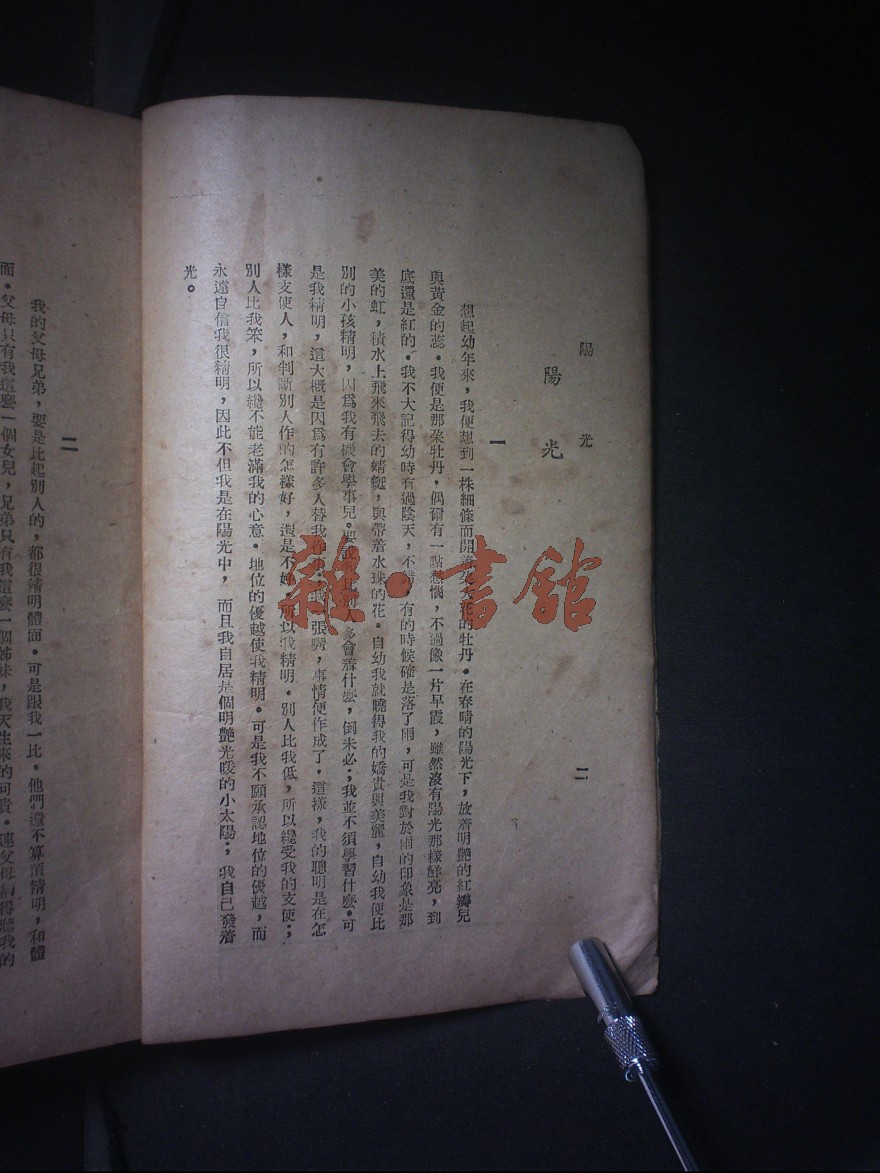 陽光 二
陽光
一
想起幼年來，我便想到一株細條而開着朵大花的牡丹，在春晴的陽光下，放着明艷的紅瓣兒
與黃金的蕊。我便是那朵牡丹。偶爾有一點愁惱，不過像一片早霞，雖然沒有陽光那樣鮮亮，到
底還是紅的。我不大記得幼時有過陰天，不錯，有的時候確是落了雨，可是我對於雨的印象是那
美的虹，積水上飛來飛去的蜻蜓，與帶着水珠的花。自幼我就曉得我的嬌貴與美麗，自幼我便比
別的小孩精明，因爲我有機會學事兒。要說我比別人多會着什麼，倒未必；我並不須學習什麼。可
是我精明，這大概是因爲有許多人替我作事；我一張嘴，事情便作成了。這樣，我的聰明是在怎
樣支使人，和判斷別人作的怎樣好，還是不好。所以我精明。別人比我低，所以纔受我的支使；
別人比我笨，所以纔不能老滿我的心意。地位的優越使我精明。可是我不願承認地位的優越，而
永遠自信我很精明，因此不但我是在陽光中，而且我自居是個明艷光暖的小太陽；我自己發着
光。
二
我的父母兄弟，要是比起別人的，都很精明體面。可是跟我一比，他們還不算頂精明，和體
面。父母只有我這麼一個女兒，兄弟只有我這麼一個姊妹，我天生來的可貴。連父母都得聽我的
雜·書館